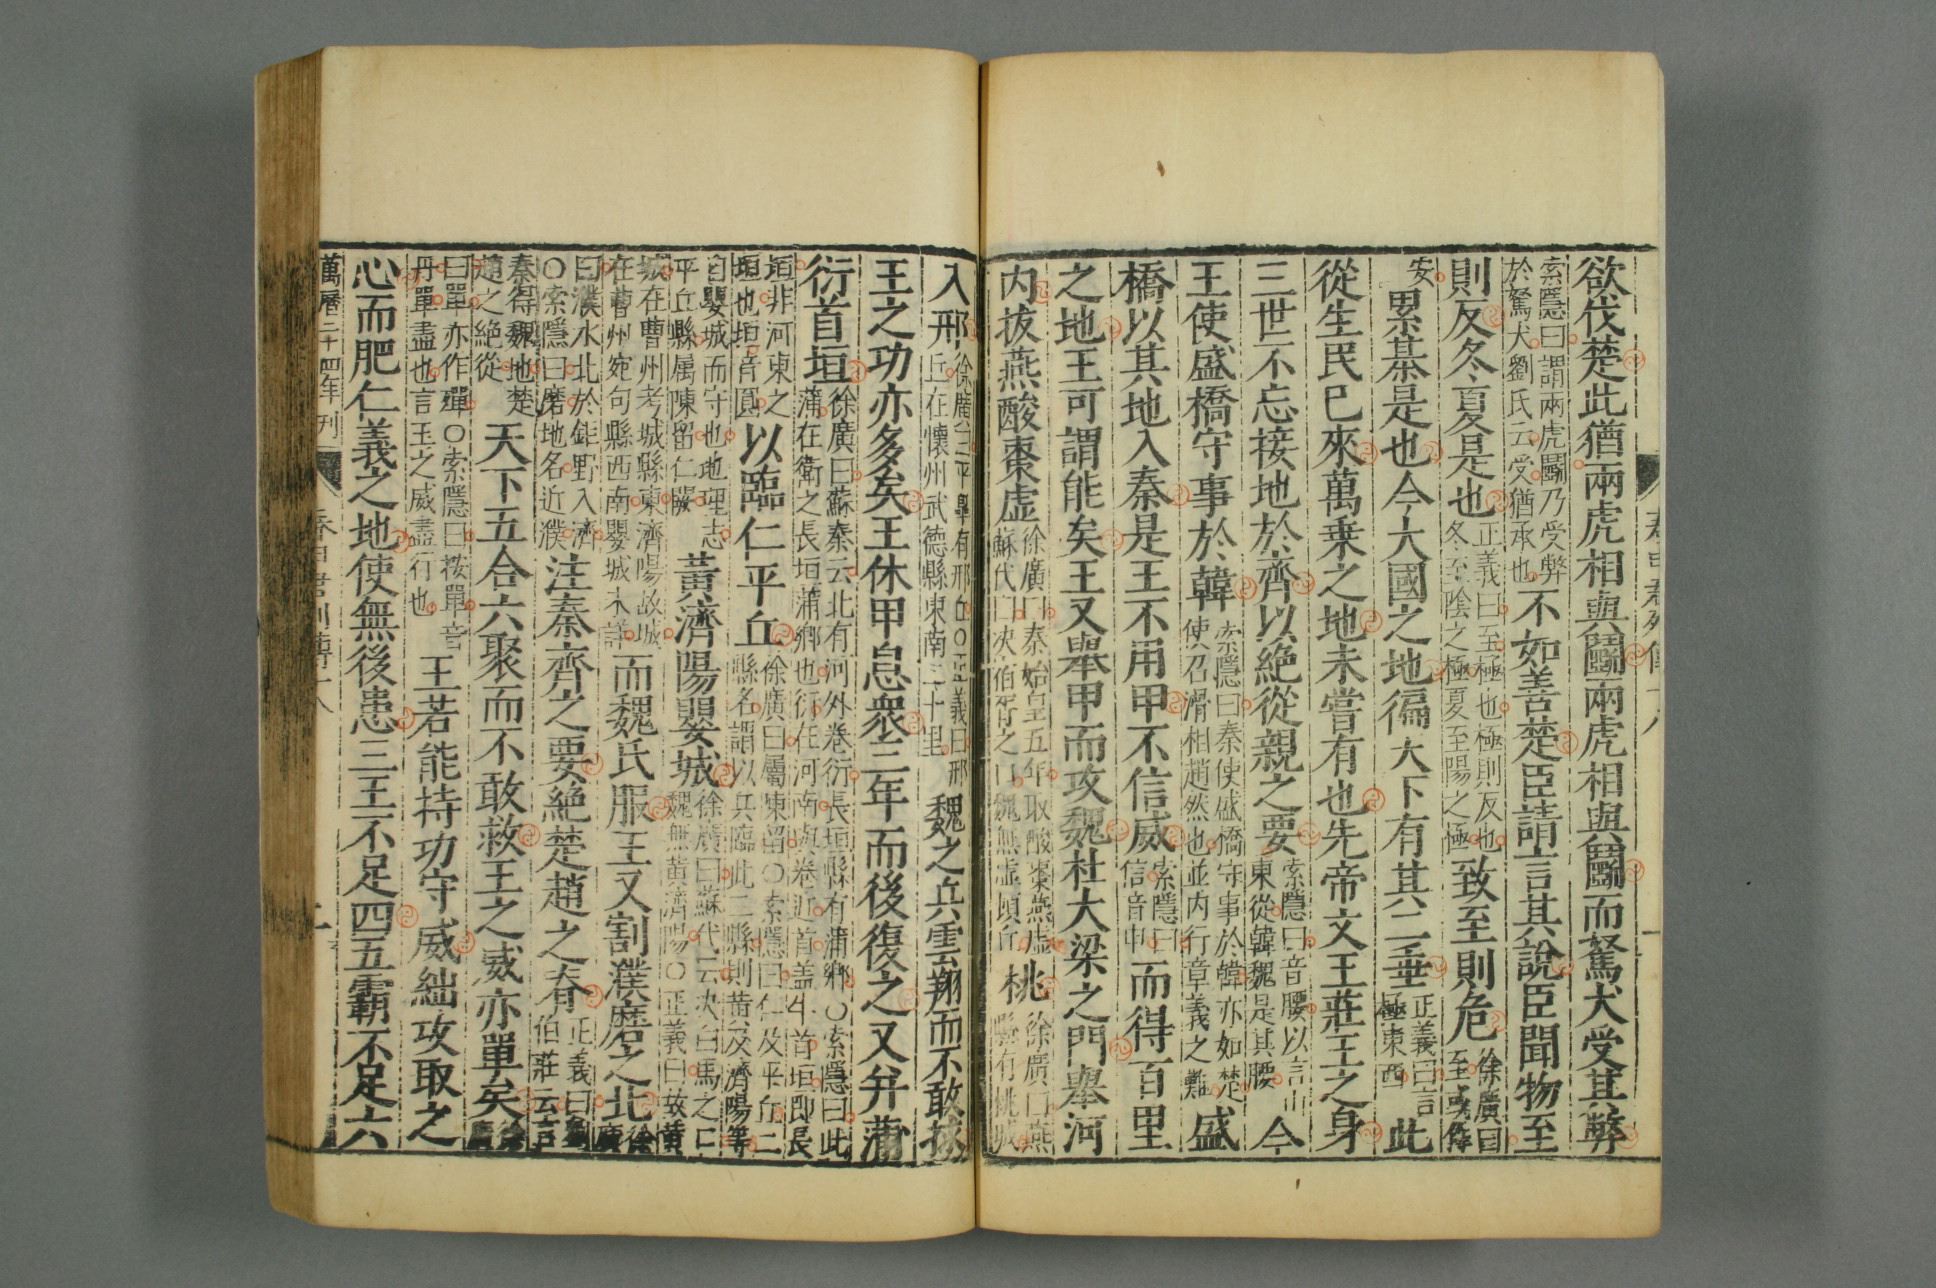 欲伐楚此猶兩虎相與鬭兩虎相與鬭而駑犬受其弊
索隱曰謂兩虎鬭乃受弊
於駑犬劉氏云受猶承也
不如善楚臣請言其說臣聞物至
則反冬夏是也
正義曰至極也極則反也
冬至陰之極夏至陽之極
致至則危
徐廣曰
至或作
安
累棊是也今大國之地徧天下有其二垂
正義曰言
極東西
此
從生民已來萬乗之地未嘗有也先帝文王莊王之身
三世不忘接地於齊以絶從親之要
索隱曰音腰以言山
東從韓魏是其腰
今
王使盛橋守事於韓
索隱曰秦使盛橋守事於韓亦如楚
使召滑相趙然也並内行章義之難
盛
橋以其地入秦是王不用甲不信威
索隱曰
信音申
而得百里
之地王可謂能矣王又舉甲而攻魏杜大梁之門舉河
内拔燕酸棗虚
徐廣曰秦始皇五年取酸棗燕虚
蘇代曰决宿胥之口魏無虚頓丘
桃
徐廣曰燕
縣有桃城
入邢
徐廣曰平臯有邢丘〇正義曰邢
丘在懷州武德縣東南二十里
魏之兵雲翔而不敢捄
王之功亦多矣王休甲息衆三年而後復之又并蒲
衍首垣
徐廣曰蘇秦云北有河外卷衍長垣縣有蒲鄉〇索隱曰此
蒲在衛之長垣蒲鄉也衍在河南與卷近首盖牛首垣即長
垣非河東之
垣也垣音圓
以臨仁平丘
徐廣曰屬陳留〇索隱曰仁及平丘二
縣名謂以兵臨此二縣則黄及濟陽等
自嬰城而守也地理志
平丘縣属陳留仁闕
黄濟陽嬰城
徐廣曰蘇代云决白馬之口
魏無黄濟陽〇正義曰故黄
城在曹州考城縣東濟陽故城
在曹州宛句縣西南嬰城未詳
而魏氏服王又割濮磨之北
徐廣
曰濮水北於鉅野入濟
〇索隱曰磨地名近濮
注秦齊之要絶楚趙之脊
正義曰劉
伯莊云言
秦得魏地楚
趙之絶從
天下五合六聚而不敢救王之威亦單矣
徐廣
曰單亦作殫〇索隱曰按單音
丹單盡也言王之威盡行也
王若能持功守威絀攻取之
心而肥仁義之地使無後患三王不足四五霸不足六
萬曆二十四年刊
春申君列傳十八
二